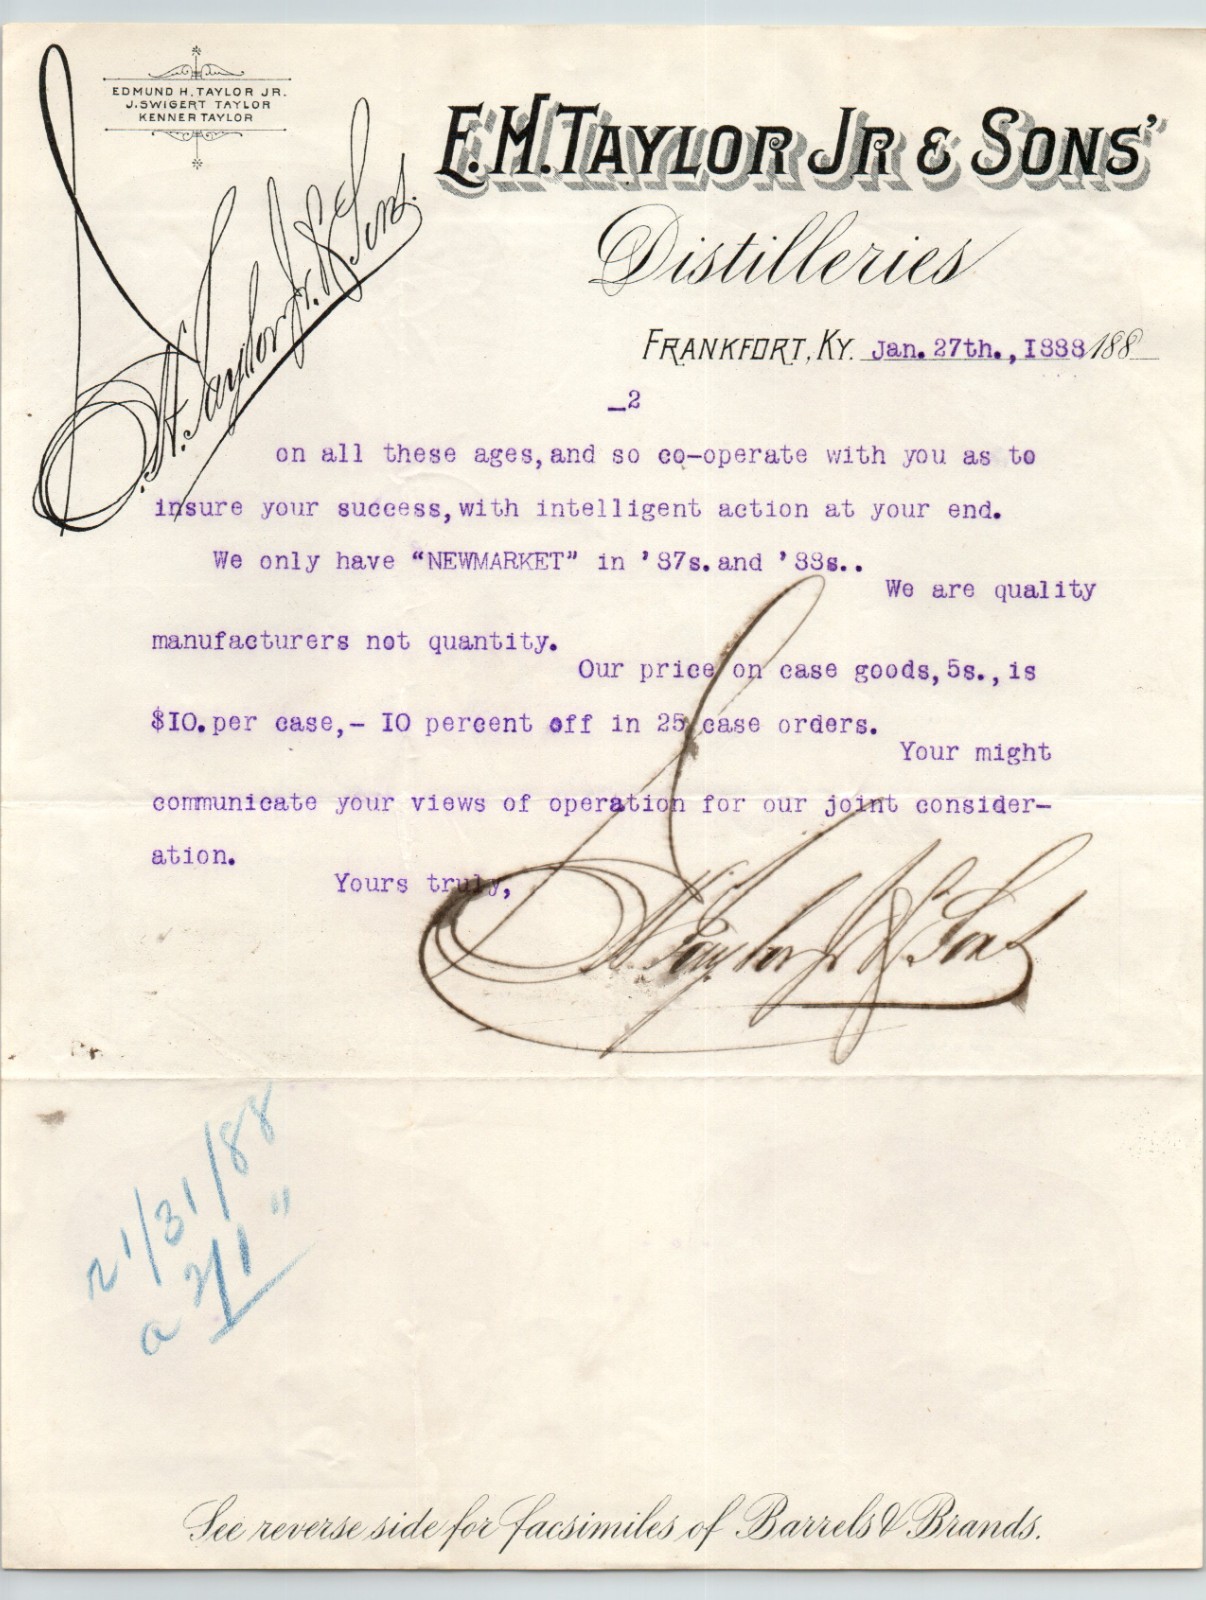 EDMUND H. TAYLOR JR.
J. SWIGERT TAYLOR
KENNER TAYLOR
E. H. Taylor Jr. & Sons.
E.H. TAYLOR JR & SONS'
Distilleries
FRANKFORT, KY. Jan. 27th., 1888 188
_2
on all these ages,and so co-operate with you as to
insure your success,with intelligent action at your end.
We only have "NEWMARKET" in '87s.and '88s..
We are quality
manufacturers not quantity.
Our price on case goods,5s.,is
$10.per case,- 10 percent off in 25 case orders.
Your might
communicate your views of operation for our joint consider-
ation.
Yours truly,
E. H. Taylor Jr & Sons
r 1/31/88
a 2/1 "
See reverse side for facsimiles of Barrels & Brands.